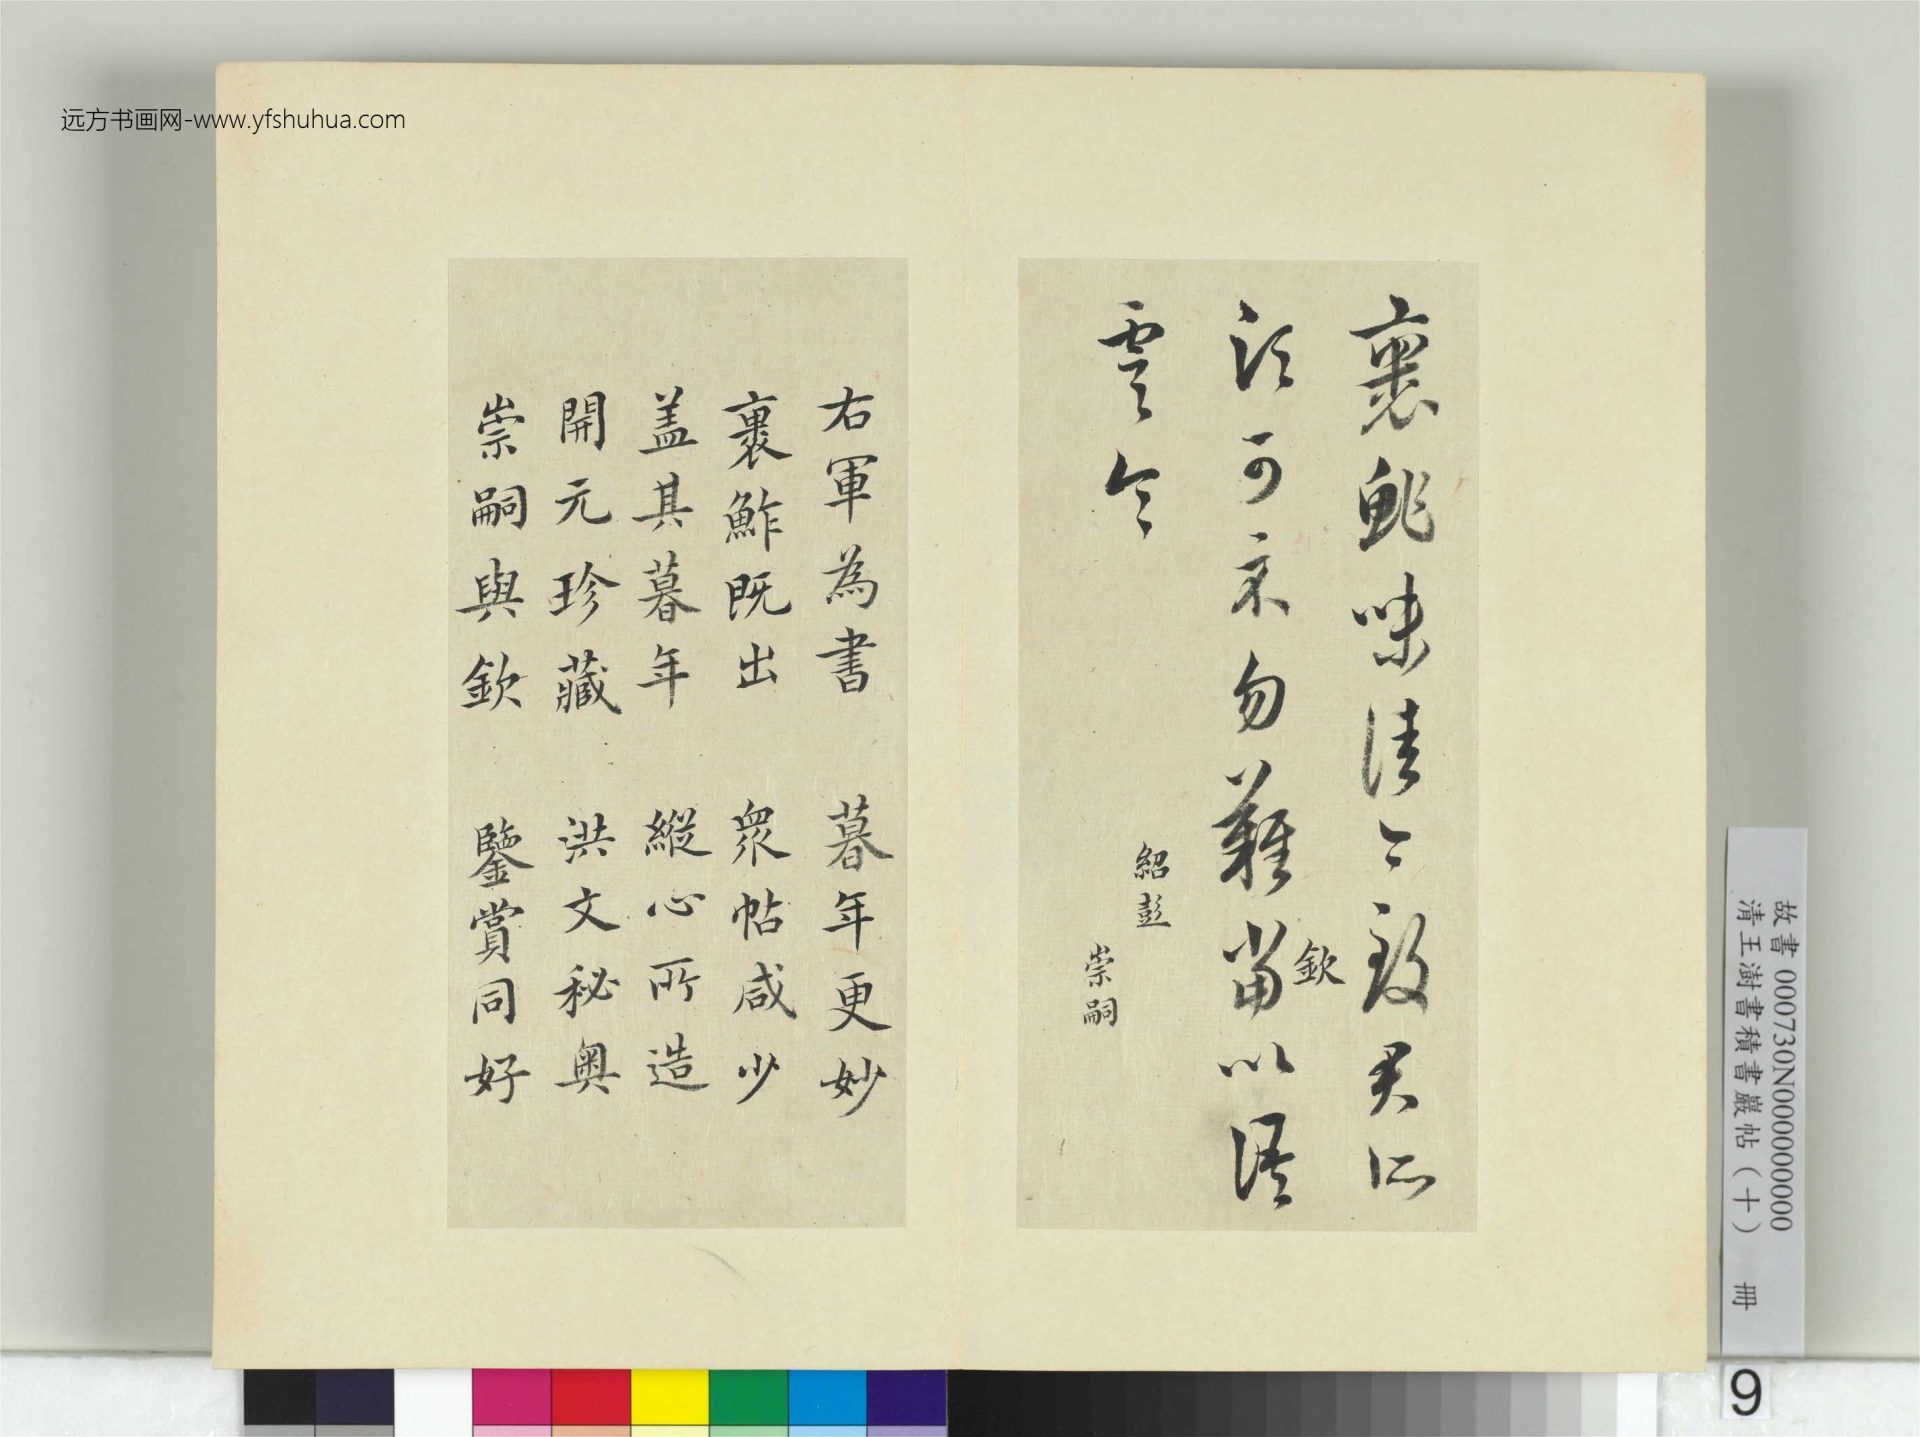 远方书画网-www.yfshuhua.com
裹鮓味佳今致君所
須可示勿難當以語
虞令
欽
紹彭
崇嗣
右軍為書 暮年更妙
裹鮓既出 衆帖咸少
盖其暮年 縱心所造
開元珍藏 洪文秘奥
崇嗣與欽 鑒賞同好
故書 000730N000000000
清王澍書積書巖帖(十) 冊
9